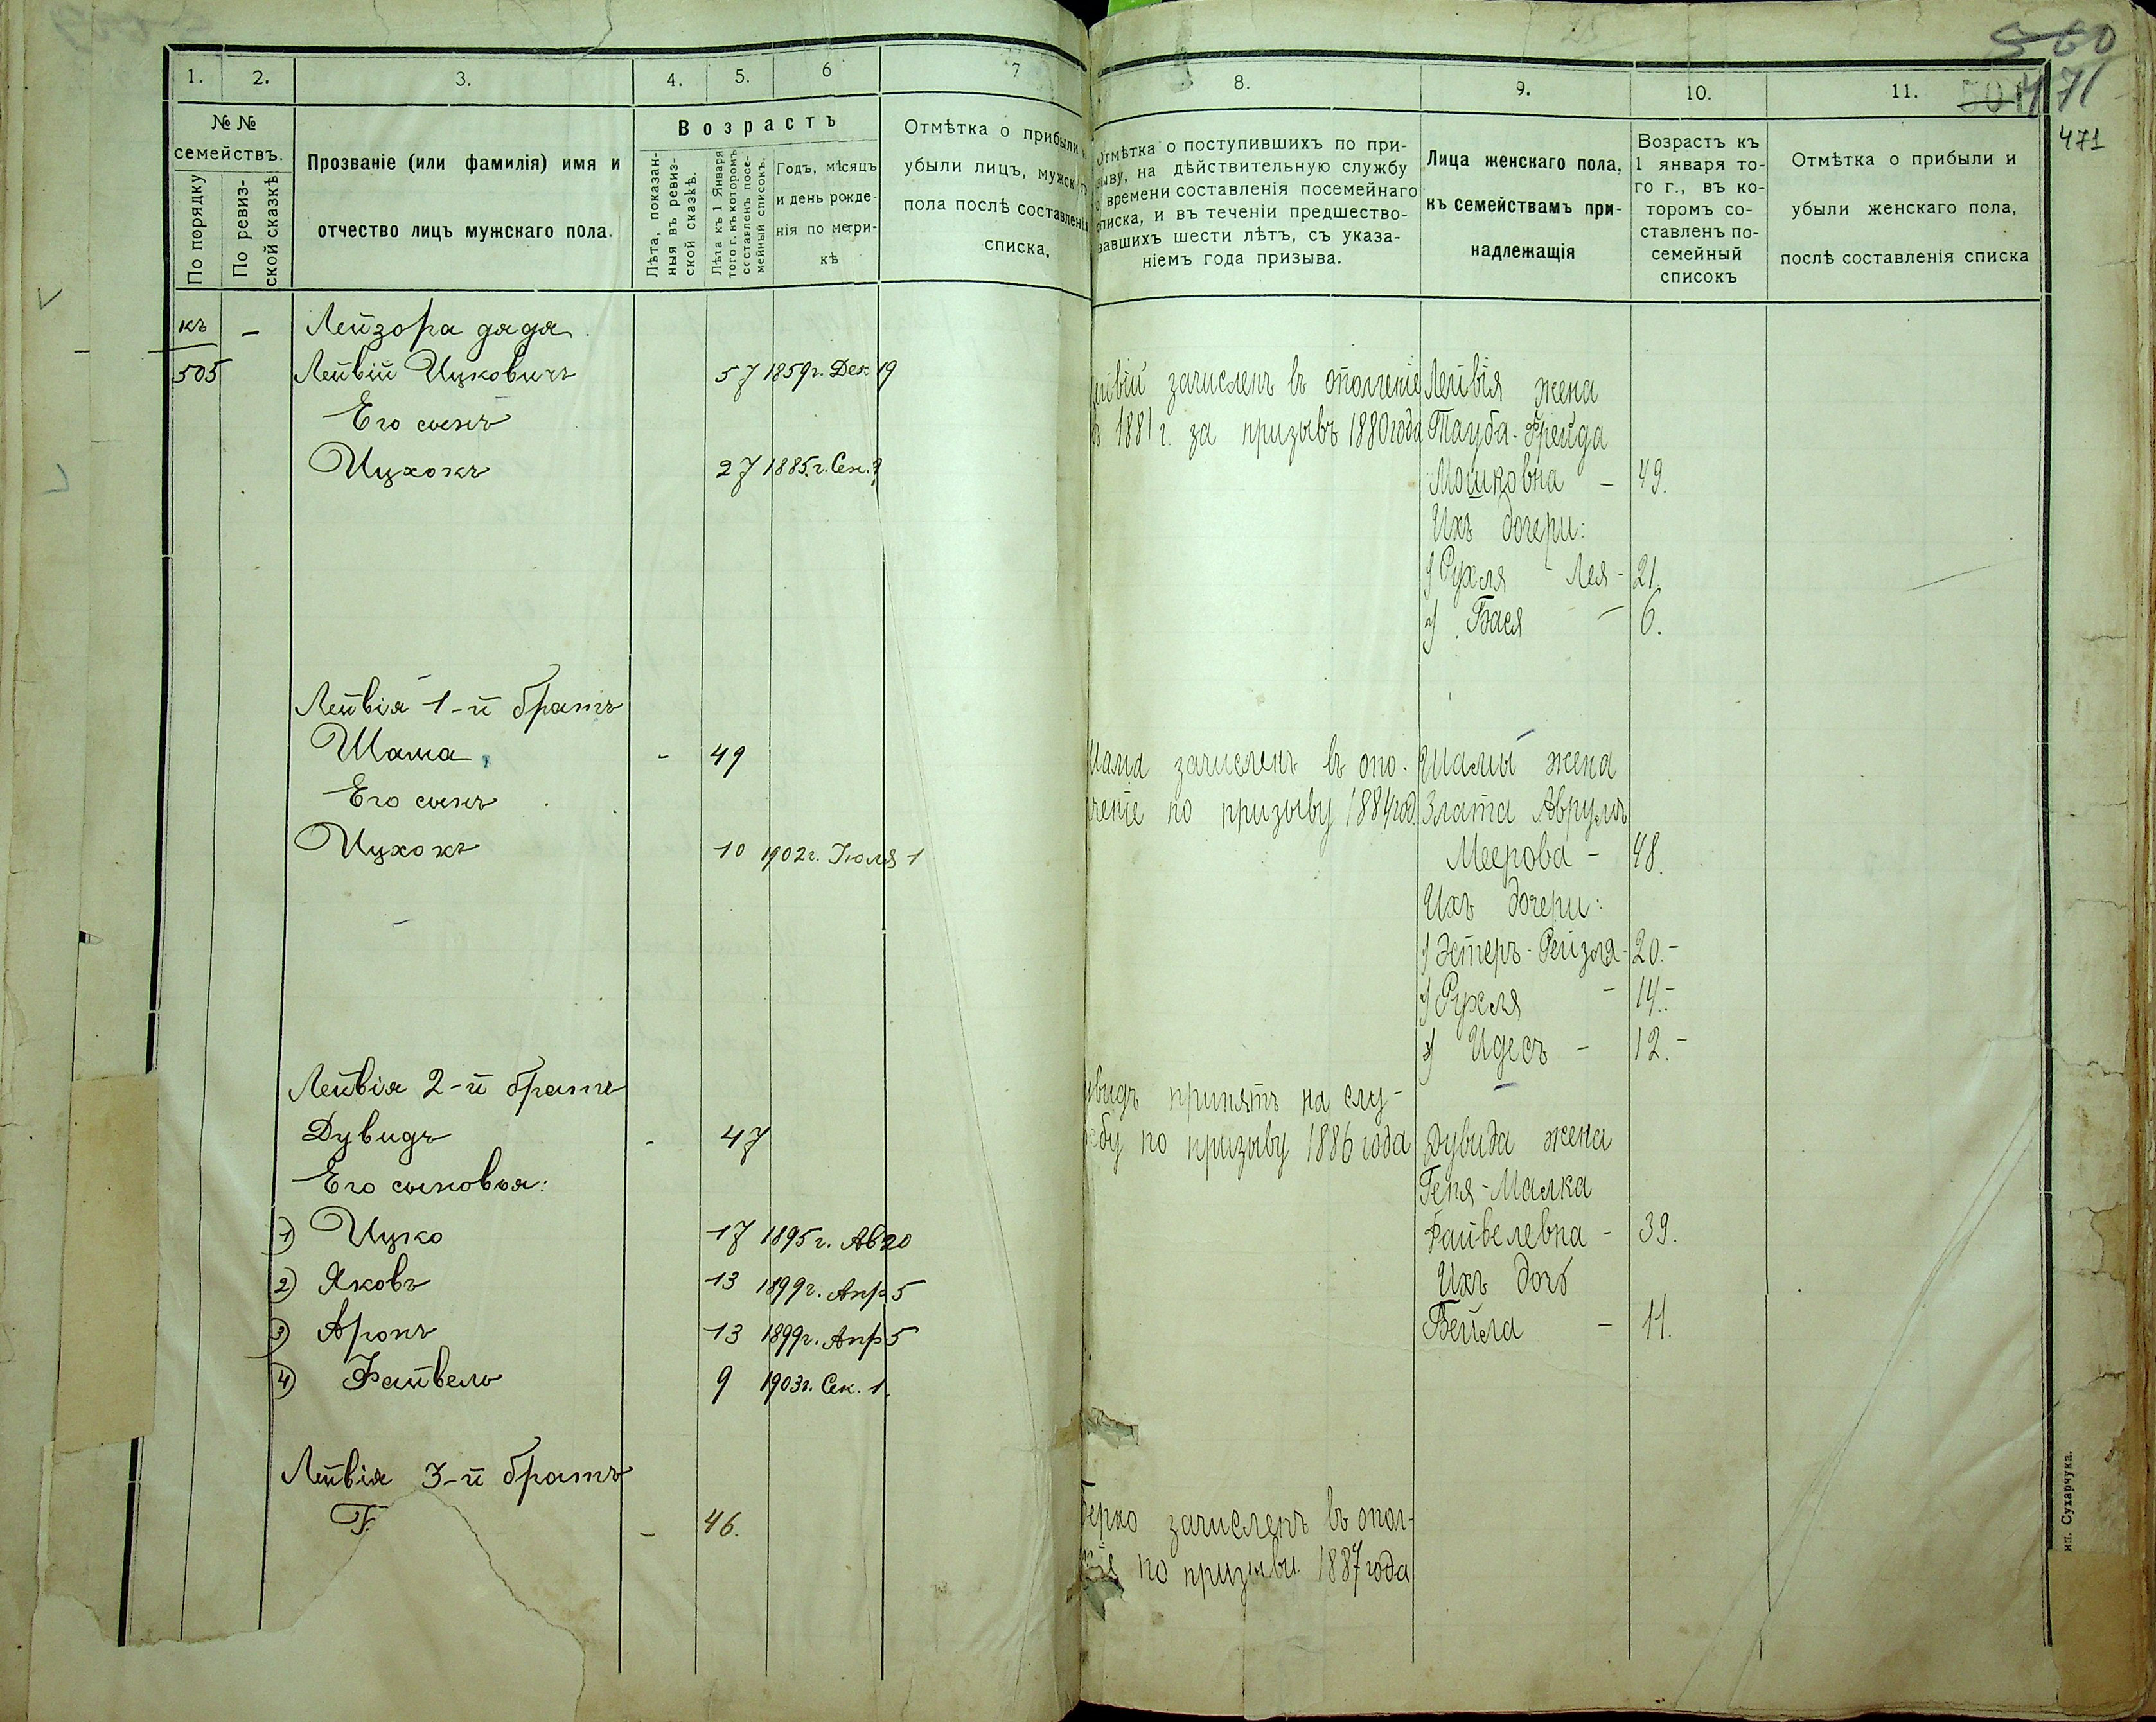 560
501 471
471
1. 2. 3. 4. 5. 6 7
№ №
семействъ.
По порядку
По ревизской сказкѣ
Прозваніе (или фамилія) имя и
отчество лицъ мужскаго пола.
Возрастъ
Лѣта, показан-
ныя въ ревиз-
ской сказкѣ.
Лѣта къ 1 Января
того г. въ которомъ
составленъ посе-
мейный списокъ.
Годъ, мѣсяцъ
и день рожде-
нія по метри-
кѣ
Отмѣтка о прибыли и
убыли лицъ, мужского
пола послѣ составленія
списка.
къ — Лейзора дядя
505 Лейвій Ицковичъ 57 1859г. Дек 19
Его сынъ
Ицхокъ 27 1885г. Сен. 2
Лейвія 1-й братъ
Шама - 49
Его сынъ
Ицхокъ 10 1902г. Іюля 1
Лейвія 2-й братъ
Дувидъ - 47
Его сыновья:
1) Ицко 17 1895г. Ав 20
2) Яковъ 13 1899г. Апр 5
3) Аронъ 13 1899г. Апр 5
4) Файвель 9 1903г. Сен. 1.
Лейвія 3-й братъ
– 46.
8. 9. 10. 11.
Отмѣтка о поступившихъ по при-
зыву, на дѣйствительную службу
о времени составленія посемейнаго
списка, и въ теченіи предшество-
вавшихъ шести лѣтъ, съ указа-
ніемъ года призыва.
Лица женскаго пола,
къ семействамъ при-
надлежащія
Возрастъ къ
1 января то-
го г., въ ко-
торомъ со-
ставленъ по-
семейный
списокъ
Отмѣтка о прибыли и
убыли женскаго пола,
послѣ составленія списка
ейвій зачисленъ въ ополченіе Лейвія жена
въ 1881 г. за призывъ 1880 года Тауба-Фрейда
Мошковна – 49.
Ихъ дочери:
1) Рухля Лея - 21.
2) Бася – 6.
Шама зачисленъ въ опо- Шамы жена
лченіе по призыву 1884 год. Злата Аврумъ
Меерова – 48.
Ихъ дочери:
1) Эстеръ-Рейзля - 20.-
2) Рухля – 14.-
3) Идесъ – 12.-
увидъ принятъ на слу-
жбу по призыву 1886 года Дувида жена
Геня-Малка
Файвелевна - 39.
Ихъ дочь
Бейла – 11.
Берко зачисленъ въ опол-
ія по призыву 1887 года
ип. Сухарчука.